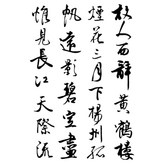 故人西辭黃鶴樓
煙花三月下揚州孤
帆遠影碧空盡
惟見長江天際流